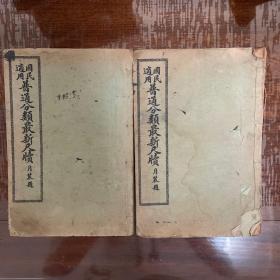 國民
適用
普通分類最新尺牘
國民
適用
普通分類最新尺牘